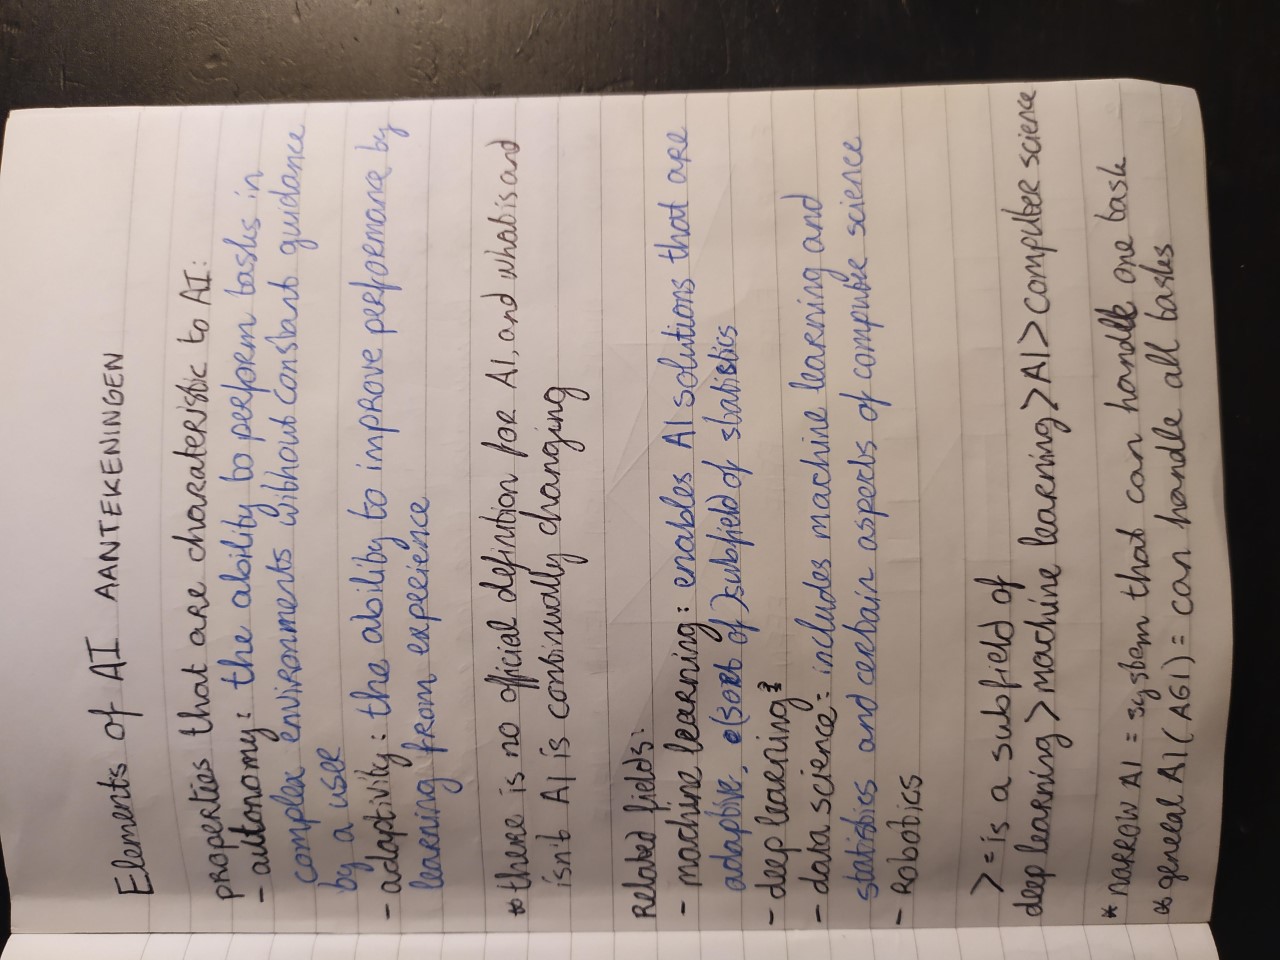 Elements of AI AANTEKENINGEN
properties that are charateristic to AI:
- autonomy: the ability to perform tasks in
complex environments without constant guidance
by a user
- adaptivity: the ability to improve performance by
learning from experience
* there is no official definition for AI, and what is and
isn't AI is continually changing
Related fields:
- machine learning: enables AI solutions that are
adaptive, (sort of) subfield of statistics
- deep learning:
- data science: includes machine learning and
statistics and certain aspects of computer science
- Robotics
> = is a subfield of
deep learning > machine learning > AI > computer science
* narrow AI = system that can handle one task
* general AI (AGI) = can handle all tasks